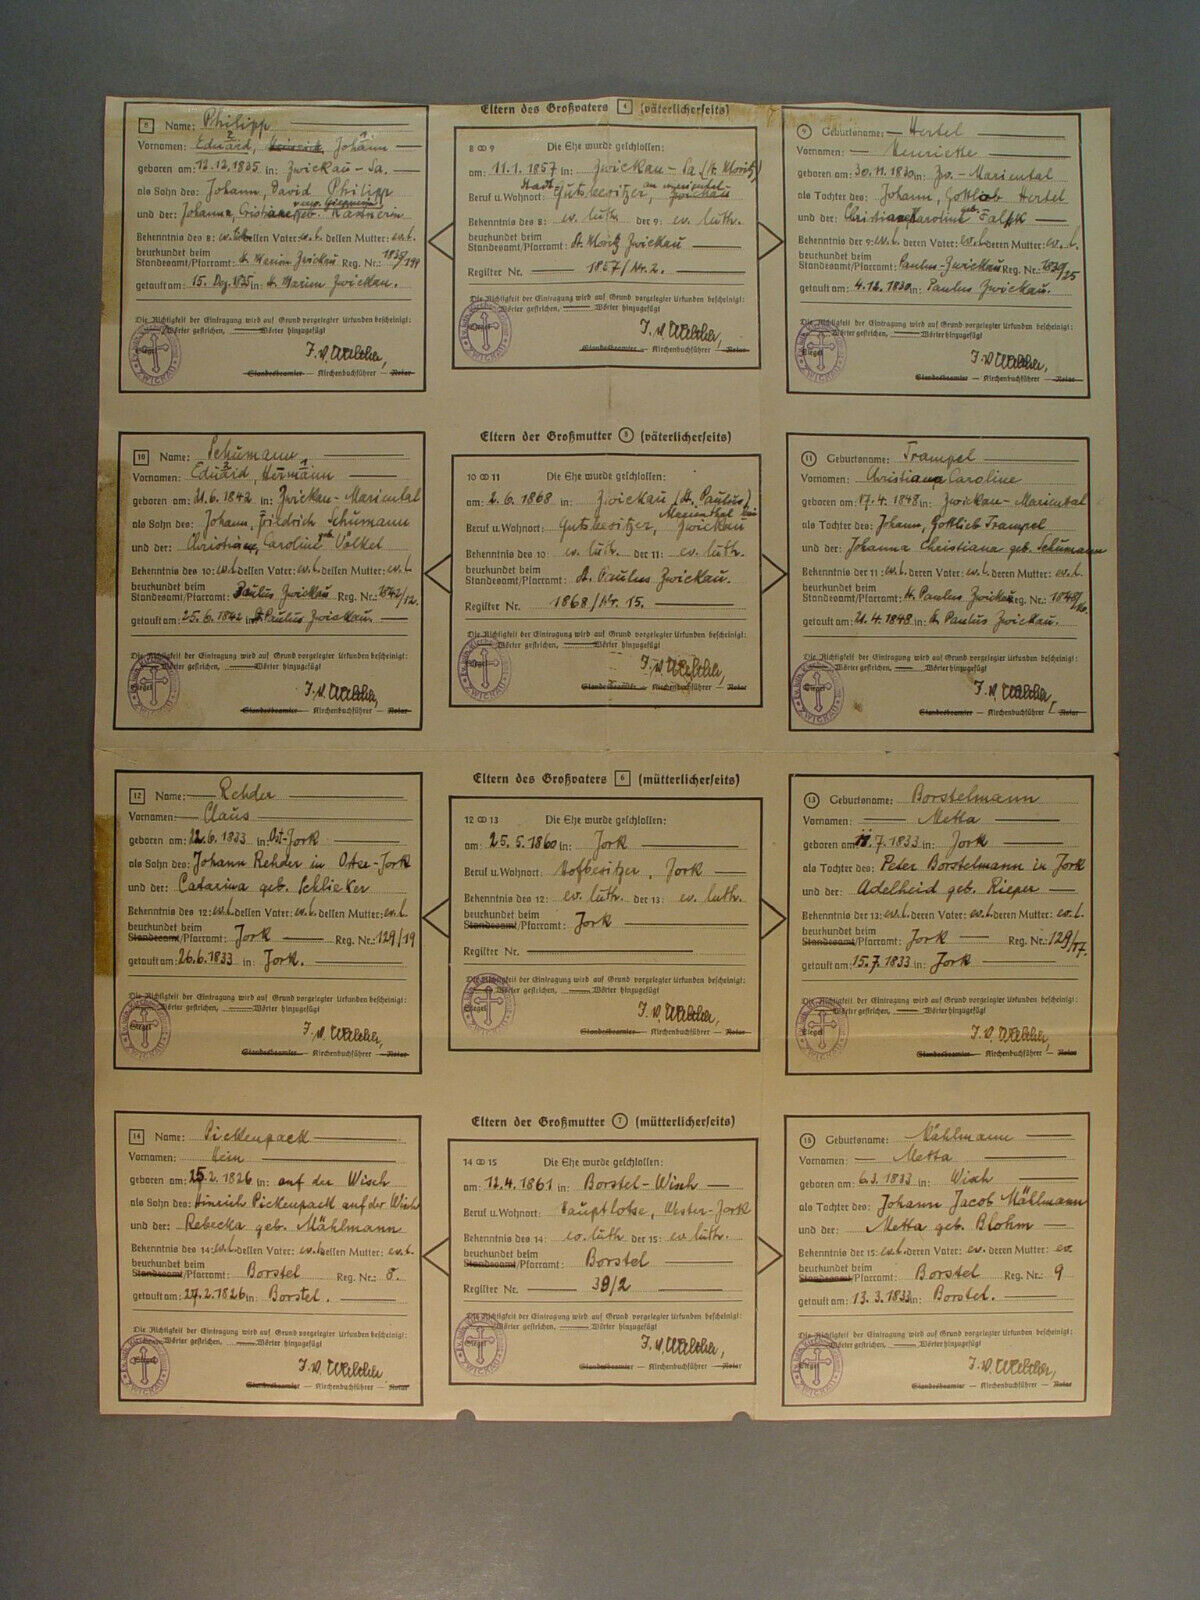 Eltern des Großvaters 4 (väterlicherseits)
8 Name: Philipp
Vornamen: Eduard, Johann
2 1
geboren am: 12.12.1835 in: Zwickau - Sa.
als Sohn des: Johann, David Philipp
und der: Johanna, geb.
Bekenntnis des 8: dessen Vater: ev. l. dessen Mutter: ev. l.
beurkundet beim
Standesamt/Pfarramt: St. Marien Zwickau Reg. Nr.: 1835/
getauft am: 15. Dez. in: St. Marien Zwickau.
Die Richtigkeit der Eintragung wird auf Grund vorgelegter Urkunden bescheinigt:
Wörter gestrichen, Wörter hinzugefügt
Siegel
ZWICKAU
Standesbeamter — Kirchenbuchführer — Notar
8 ∞ 9 Die Ehe wurde geschlossen:
am: 11.1.1857 in: Zwickau - Sa. (St. Moritz)
Beruf u. Wohnort: Gutsbesitzer, Zwickau
Bekenntnis des 8: ev. luth. der 9: ev. luth.
beurkundet beim
Standesamt/Pfarramt: St. Moritz Zwickau
Register Nr. 1857/Nr. 2.
Die Richtigkeit der Eintragung wird auf Grund vorgelegter Urkunden bescheinigt:
Wörter gestrichen, Wörter hinzugefügt
Siegel
ZWICKAU
Standesbeamter — Kirchenbuchführer — Notar
9 Geburtsname: Hertel
Vornamen: Henriette
geboren am: 30.11.1830 in: Zw. - Mariental
als Tochter des: Johann, Gottlieb Hertel
und der: Christiane Karoline geb.
Bekenntnis der 9: ev. l. deren Vater: ev. l. deren Mutter: ev. l.
beurkundet beim
Standesamt/Pfarramt: Paulus-Zwickau Reg. Nr.: 1830/25
getauft am: 4.12.1830 in: Paulus Zwickau.
Die Richtigkeit der Eintragung wird auf Grund vorgelegter Urkunden bescheinigt:
Wörter gestrichen, Wörter hinzugefügt
Siegel
ZWICKAU
Standesbeamter — Kirchenbuchführer — Notar
Eltern der Großmutter 5 (väterlicherseits)
10 Name: Schumann
Vornamen: Eduard, Hermann
2 1
geboren am: 21.6.1842 in: Zwickau - Mariental
als Sohn des: Johann, Friedrich Schumann
und der: Christiane, Caroline geb. Völkel
Bekenntnis des 10: ev. l. dessen Vater: ev. l. dessen Mutter: ev. l.
beurkundet beim
Standesamt/Pfarramt: Paulus Zwickau Reg. Nr.: 1842/12.
getauft am: 25.6.1842 in: St. Paulus Zwickau.
Die Richtigkeit der Eintragung wird auf Grund vorgelegter Urkunden bescheinigt:
Wörter gestrichen, Wörter hinzugefügt
Siegel
ZWICKAU
Standesbeamter — Kirchenbuchführer — Notar
10 ∞ 11 Die Ehe wurde geschlossen:
am: 2.6.1868 in: Zwickau (St. Paulus)
Marienthal bei
Beruf u. Wohnort: Gutsbesitzer, Zwickau
Bekenntnis des 10 ev. luth. der 11: ev. luth.
beurkundet beim
Standesamt/Pfarramt: St. Paulus Zwickau.
Register Nr. 1868/Nr. 15.
Die Richtigkeit der Eintragung wird auf Grund vorgelegter Urkunden bescheinigt:
Wörter gestrichen, Wörter hinzugefügt
Siegel
ZWICKAU
Standesbeamter — Kirchenbuchführer — Notar
11 Geburtsname: Trampel
Vornamen: Christiana Caroline
geboren am: 17.4.1848 in: Zwickau - Mariental
als Tochter des: Johann, Gottlieb Trampel
und der: Johanna Christiana geb. Schumann
Bekenntnis der 11: ev. l. deren Vater: ev. l. deren Mutter: ev. l.
beurkundet beim
Standesamt/Pfarramt: St. Paulus Zwickau Reg. Nr.: 1848/
getauft am: 21.4.1848 in: St. Paulus Zwickau.
Die Richtigkeit der Eintragung wird auf Grund vorgelegter Urkunden bescheinigt:
Wörter gestrichen, Wörter hinzugefügt
Siegel
ZWICKAU
Standesbeamter — Kirchenbuchführer — Notar
Eltern des Großvaters 6 (mütterlicherseits)
12 Name: Rehder
Vornamen: Claus
geboren am: 22.6.1833 in: Ost-Jork
als Sohn des: Johann Rehder in Oster-Jork
und der: Catarina geb. Schlieker
Bekenntnis des 12: ev. l. dessen Vater: ev. l. dessen Mutter: ev. l.
beurkundet beim
Standesamt/Pfarramt: Jork Reg. Nr.: 129/19
getauft am: 26.6.1833 in: Jork.
Die Richtigkeit der Eintragung wird auf Grund vorgelegter Urkunden bescheinigt:
Wörter gestrichen, Wörter hinzugefügt
Siegel
ZWICKAU
Standesbeamter — Kirchenbuchführer — Notar
12 ∞ 13 Die Ehe wurde geschlossen:
am: 25.5.1860 in: Jork
Beruf u. Wohnort: Hofbesitzer, Jork
Bekenntnis des 12: ev. luth. der 13: ev. luth.
beurkundet beim
Standesamt/Pfarramt: Jork
Register Nr.
Die Richtigkeit der Eintragung wird auf Grund vorgelegter Urkunden bescheinigt:
Wörter gestrichen, Wörter hinzugefügt
Siegel
ZWICKAU
Standesbeamter — Kirchenbuchführer — Notar
13 Geburtsname: Borstelmann
Vornamen: Metta
geboren am: 11.7.1833 in: Jork
als Tochter des: Peter Borstelmann in Jork
und der: Adelheid geb. Rieper
Bekenntnis der 13: ev. l. deren Vater: ev. l. deren Mutter: ev. l.
beurkundet beim
Standesamt/Pfarramt: Jork Reg. Nr.: 129/17.
getauft am: 15.7.1833 in: Jork
Die Richtigkeit der Eintragung wird auf Grund vorgelegter Urkunden bescheinigt:
Wörter gestrichen, Wörter hinzugefügt
Siegel
ZWICKAU
Standesbeamter — Kirchenbuchführer — Notar
Eltern der Großmutter 7 (mütterlicherseits)
14 Name: Pickenpack
Vornamen: Hein
geboren am: 25.2.1826 in: auf der Wisch
als Sohn des: Hinrich Pickenpack auf der Wisch
und der: Rebecka geb. Mählmann
Bekenntnis des 14: ev. l. dessen Vater: ev. l. dessen Mutter: ev. l.
beurkundet beim
Standesamt/Pfarramt: Borstel Reg. Nr.: 8.
getauft am: 27.2.1826 in: Borstel.
Die Richtigkeit der Eintragung wird auf Grund vorgelegter Urkunden bescheinigt:
Wörter gestrichen, Wörter hinzugefügt
Siegel
ZWICKAU
Standesbeamter — Kirchenbuchführer — Notar
14 ∞ 15 Die Ehe wurde geschlossen:
am: 12.4.1861 in: Borstel-Wisch
Beruf u. Wohnort: Hauptlotse, Wester-Jork
Bekenntnis des 14: ev. luth. der 15: ev. luth.
beurkundet beim
Standesamt/Pfarramt: Borstel
Register Nr. 39/2
Die Richtigkeit der Eintragung wird auf Grund vorgelegter Urkunden bescheinigt:
Wörter gestrichen, Wörter hinzugefügt
Siegel
ZWICKAU
Standesbeamter — Kirchenbuchführer — Notar
15 Geburtsname: Mählmann
Vornamen: Metta
geboren am: 6.3.1833 in: Wisch
als Tochter des: Johann Jacob Mählmann
und der: Metta geb. Blohm
Bekenntnis der 15: ev. l. deren Vater: ev. deren Mutter: ev.
beurkundet beim
Standesamt/Pfarramt: Borstel Reg. Nr.: 9
getauft am: 13.3.1833 in: Borstel.
Die Richtigkeit der Eintragung wird auf Grund vorgelegter Urkunden bescheinigt:
Wörter gestrichen, Wörter hinzugefügt
Siegel
ZWICKAU
Standesbeamter — Kirchenbuchführer — Notar